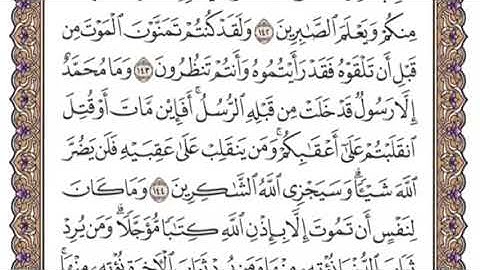 مِنكُمْ وَيَعْلَمَ الصَّٰبِرِينَ ١٤٢ وَلَقَدْ كُنتُمْ تَمَنَّوْنَ الْمَوْتَ مِن
قَبْلِ أَن تَلْقَوْهُ فَقَدْ رَأَيْتُمُوهُ وَأَنتُمْ تَنظُرُونَ ١٤٣ وَمَا مُحَمَّدٌ
إِلَّا رَسُولٌ قَدْ خَلَتْ مِن قَبْلِهِ الرُّسُلُ ۚ أَفَإِيْن مَّاتَ أَوْ قُتِلَ
انقَلَبْتُمْ عَلَىٰ أَعْقَٰبِكُمْ ۚ وَمَن يَنقَلِبْ عَلَىٰ عَقِبَيْهِ فَلَن يَضُرَّ
اللَّهَ شَيْـًٔا ۗ وَسَيَجْزِي اللَّهُ الشَّٰكِرِينَ ١٤٤ وَمَا كَانَ
لِنَفْسٍ أَن تَمُوتَ إِلَّا بِإِذْنِ اللَّهِ كِتَٰبًا مُّؤَجَّلًا ۗ وَمَن يُرِدْ
ثَوَابَ الدُّنْيَا نُؤْتِهِ مِنْهَا وَمَن يُرِدْ ثَوَابَ الْآخِرَةِ نُؤْتِهِ مِنْهَا ۚ